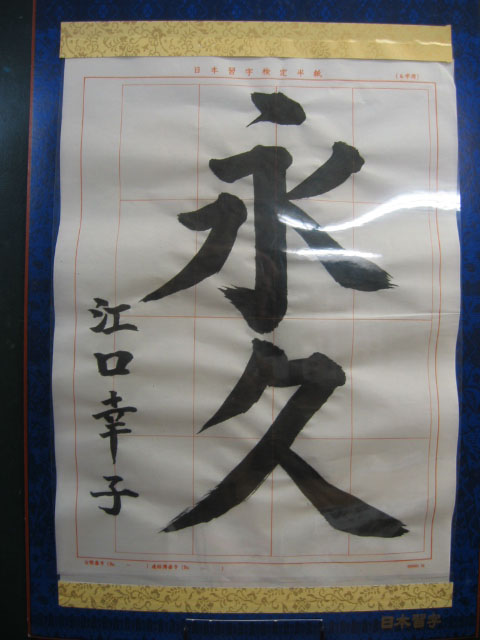 日本習字検定半紙
永久
江口幸子
日本習字